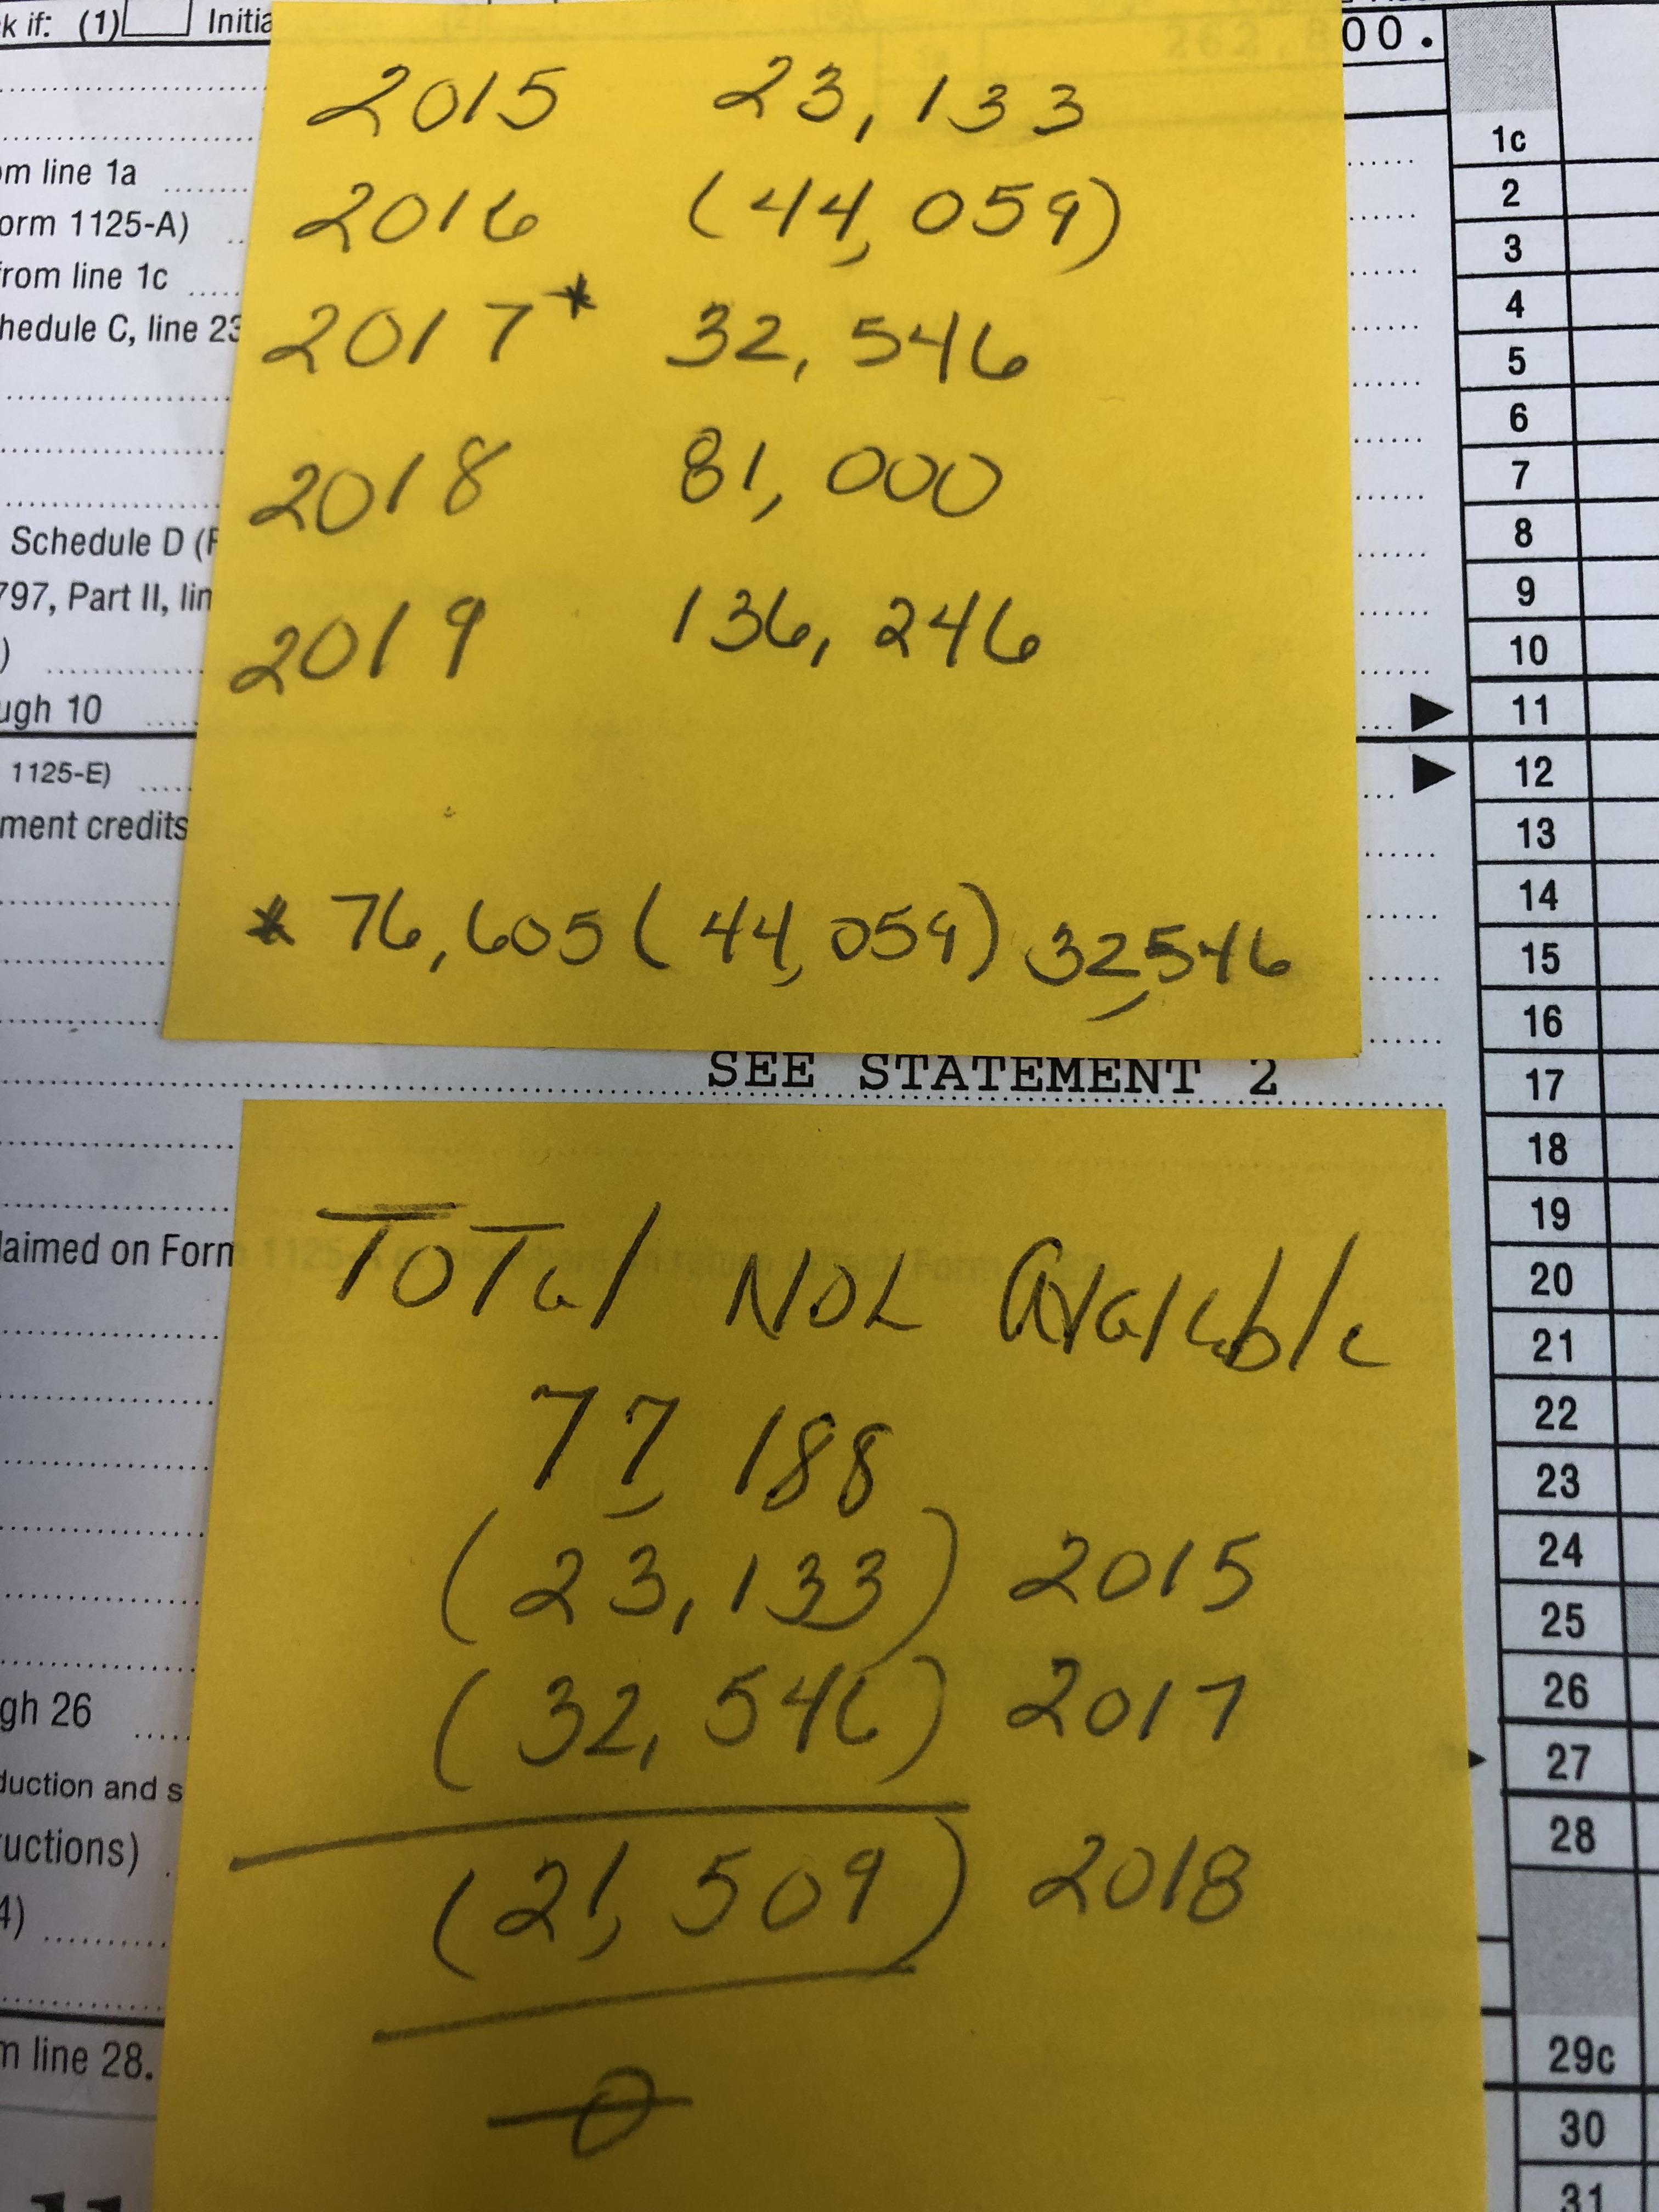 k if: (1) Initia
00.
2015 23,133
1c
om line 1a
2016 (44,059)
2
orm 1125-A)
3
from line 1c
2017* 32,546
4
hedule C, line 23
5
6
2018 81,000
7
Schedule D (F
8
797, Part II, lin
9
2019 136,246
)
10
ugh 10
11
1125-E)
12
ment credits
13
14
* 76,605 (44,059) 32,546
15
16
SEE STATEMENT 2
17
18
19
laimed on Form
Total NOL Available
20
21
77,188
22
23
(23,133) 2015
24
25
(32,546) 2017
gh 26
26
27
duction and s
(21,509) 2018
28
uctions)
4)
0
m line 28.
29c
30
31